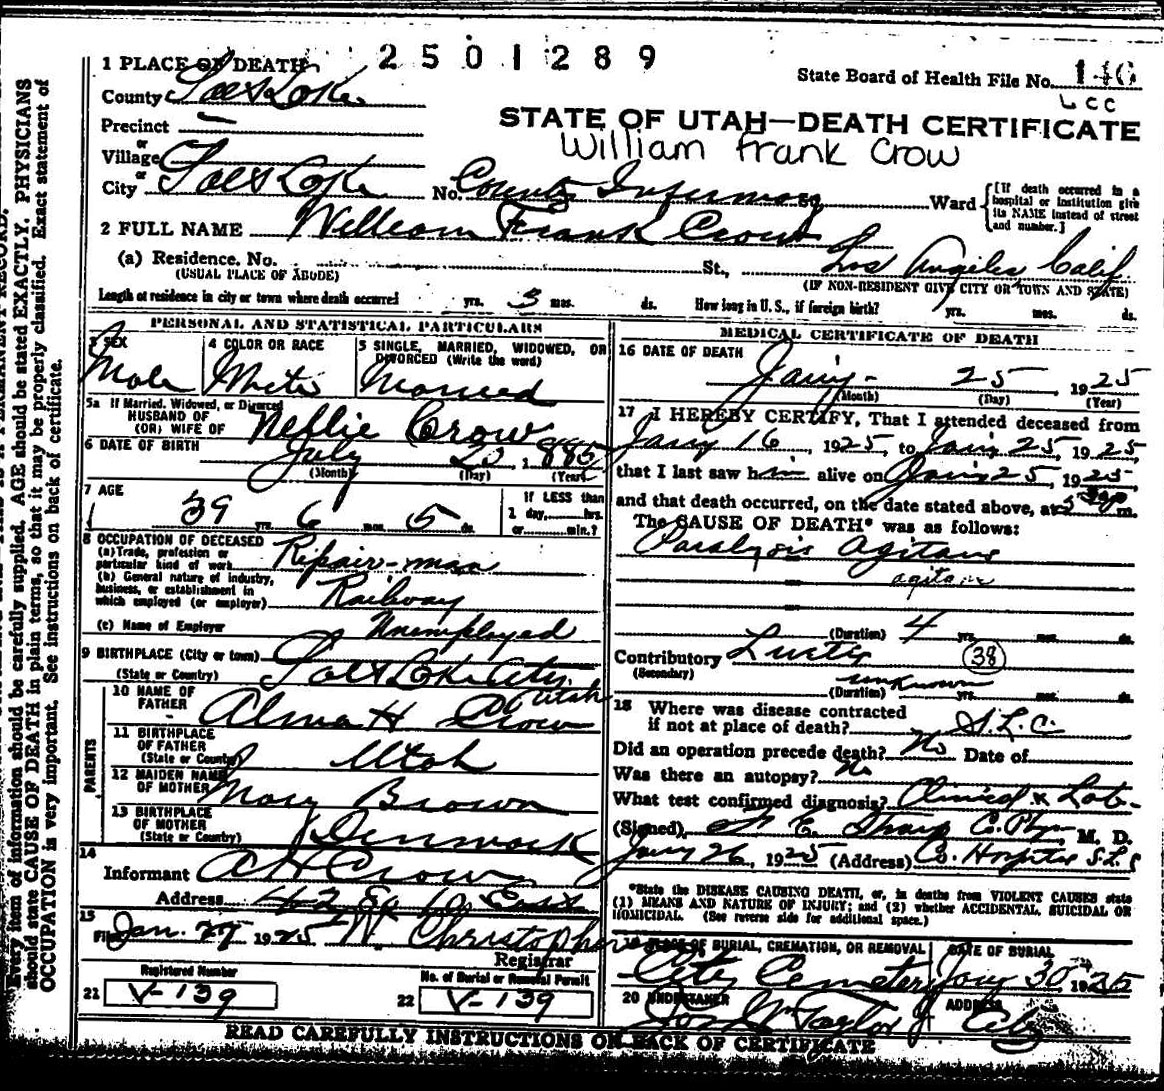 2501289
1 PLACE OF DEATH
State Board of Health File No. 146
County Salt Lake
LCC
Precinct
STATE OF UTAH—DEATH CERTIFICATE
or
Village
William Frank Crow
or
City Salt Lake No. County Infirmary Ward [If death occurred in a hospital or institution give its NAME instead of street and number.]
2 FULL NAME William Frank Crow
(a) Residence. No. St., Los Angeles Calif.
(USUAL PLACE OF ABODE) (IF NON-RESIDENT GIVE CITY OR TOWN AND STATE)
Length of residence in city or town where death occurred yrs. 3 mos. ds. How long in U. S., if foreign birth? yrs. mos. ds.
PERSONAL AND STATISTICAL PARTICULARS
3 SEX
Male
4 COLOR OR RACE
White
5 SINGLE, MARRIED, WIDOWED, OR DIVORCED (Write the word)
Married
5a If Married, Widowed, or Divorced
HUSBAND OF
(OR) WIFE OF Nellie Crow
6 DATE OF BIRTH July 20, 1885
(Month) (Day) (Year)
7 AGE
39 yrs. 6 mos. 5 ds.
If LESS than
1 day,....hrs.
or....min.?
8 OCCUPATION OF DECEASED
(a) Trade, profession or
particular kind of work Repair-man
(b) General nature of industry,
business, or establishment in
which employed (or employer) Railway
(c) Name of Employer Unemployed
9 BIRTHPLACE (City or town) Salt Lake City,
(State or Country) Utah
PARENTS
10 NAME OF
FATHER Alma H Crow
11 BIRTHPLACE
OF FATHER
(State or Country) Utah
12 MAIDEN NAME
OF MOTHER Mary Brown
13 BIRTHPLACE
OF MOTHER
(State or Country) Denmark
14
Informant A H Crow
Address 42 So 10 East
15
Filed Jan. 27 1925 W. Christopherson
Registrar
Registered Number No. of Burial or Removal Permit
21 V-139 22 V-139
MEDICAL CERTIFICATE OF DEATH
16 DATE OF DEATH
Jany- 25, 1925
(Month) (Day) (Year)
17 I HEREBY CERTIFY, That I attended deceased from
Jany 16, 1925, to Jany 25, 1925,
that I last saw him alive on Jany 25, 1925
and that death occurred, on the date stated above, at 5 30p m.
The CAUSE OF DEATH* was as follows:
Paralysis Agitans
agitans
(Duration) 4 yrs. mos. ds.
Contributory Luetic 38
(Secondary)
unknown
(Duration) yrs. mos. ds.
18 Where was disease contracted
if not at place of death? S.L.C.
Did an operation precede death? No Date of
Was there an autopsy? No
What test confirmed diagnosis? Clinical & Lab-
(Signed) E. Tharp C. Phy M. D.
Jany 26, 1925 (Address) Co. Hospital S.L.C
*State the DISEASE CAUSING DEATH, or, in deaths from VIOLENT CAUSES state
(1) MEANS AND NATURE OF INJURY; and (2) whether ACCIDENTAL, SUICIDAL OR
HOMICIDAL. (See reverse side for additional space.)
PLACE OF BURIAL, CREMATION, OR REMOVAL DATE OF BURIAL
City Cemetery Jany 30 1925
20 UNDERTAKER ADDRESS
Jos Wm Taylor City
READ CAREFULLY INSTRUCTIONS ON BACK OF CERTIFICATE
Every item of information should be carefully supplied. AGE should be stated EXACTLY. PHYSICIANS
should state CAUSE OF DEATH in plain terms, so that it may be properly classified. Exact statement of
OCCUPATION is very important. See instructions on back of certificate.